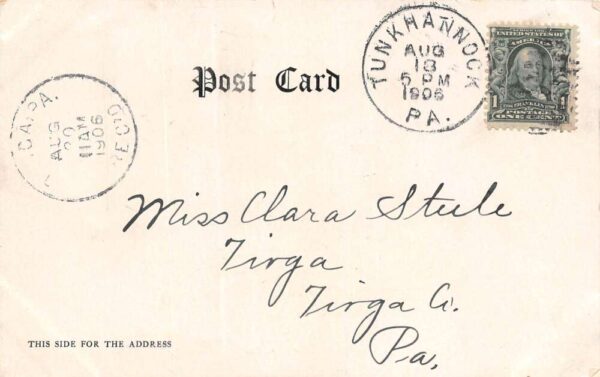 TUNKHANNOCK
AUG
18
5 PM
1906
PA.
UNITED STATES OF AMERICA
FRANKLIN
1 1
POSTAGE
ONE CENT
Post Card
CA, PA.
AUG
20
11 AM
1906
REC'D
Miss Clara Steele
Tioga
Tioga Co.
Pa.
THIS SIDE FOR THE ADDRESS